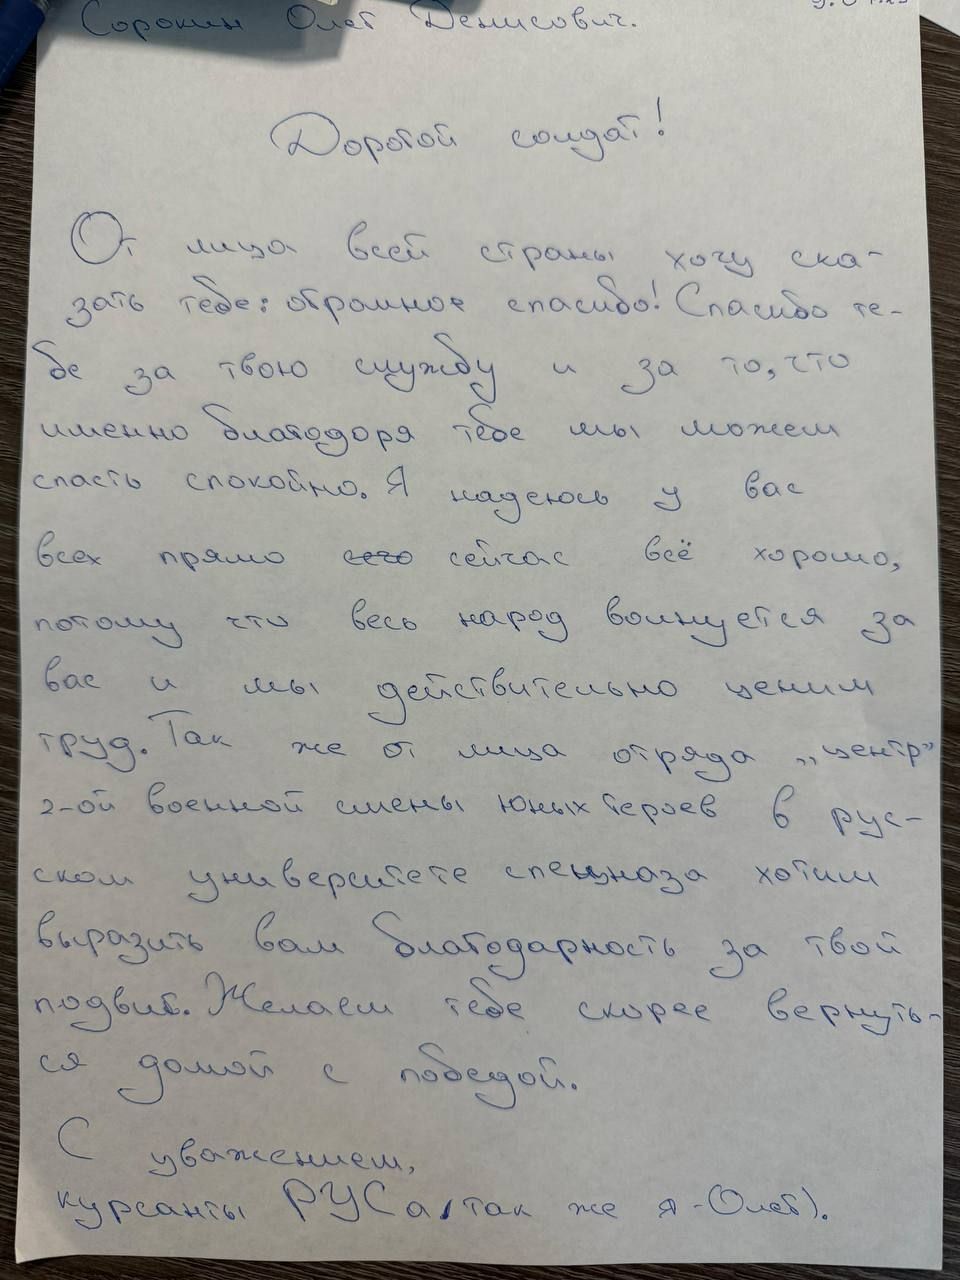 Сорокин Олег Денисович.
Дорогой солдат!
От лица всей страны хочу ска-
зать тебе: огромное спасибо! Спасибо те-
бе за твою службу и за то, что
именно благодоря тебе мы можем
спасть спокойно. Я надеюсь у вас
всех прямо сейчас всё хорошо,
потому что весь народ волнуется за
вас и мы действительно ценим
труд. Так же от лица отряда „центр”
2-ой военной смены юных героев в рус-
ском университете спецназа хотим
выразить вам благодарность за твой
подвиг. Желаем тебе скорее вернуть-
ся домой с победой.
С уважением,
курсанты РУСа, (так же я - Олег).